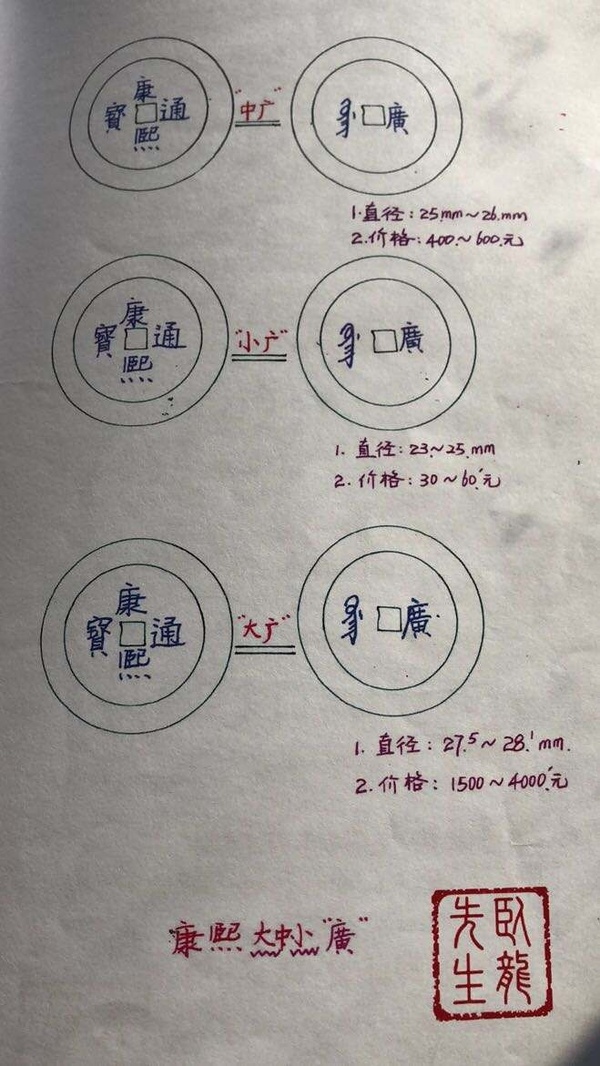 康熙通寶
"中广"
廣
1.直径：25mm～26.mm
2.价格：400～600.元
康熙通寶
"小广"
廣
1. 直径：23～25.mm
2. 价格：30～60.元
康熙通寶
"大广"
廣
1. 直径：27.5～28.1mm.
2. 价格：1500～4000.元
"康熙大中小"廣"
臥龍
先生